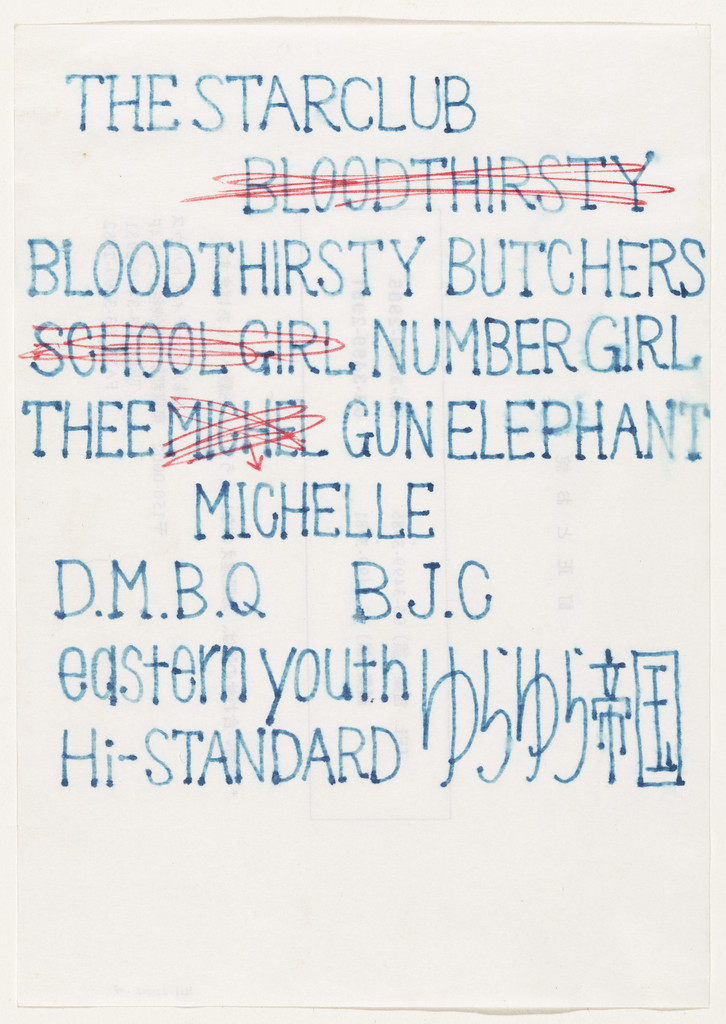 THE STARCLUB
BLOODTHIRSTY
BLOODTHIRSTY BUTCHERS
SCHOOL GIRL NUMBER GIRL
THEE MICHEL GUN ELEPHANT
MICHELLE
D.M.B.Q B.J.C
eastern youth ゆらゆら帝国
Hi-STANDARD